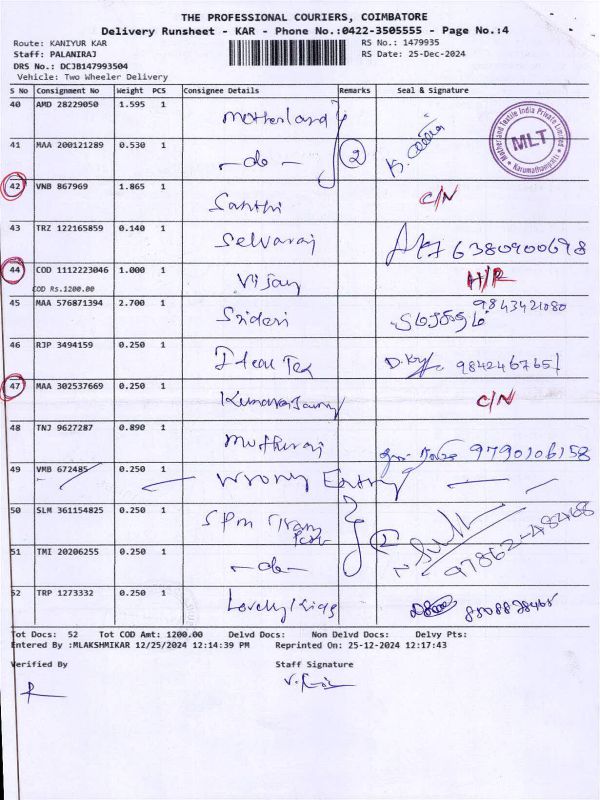 THE PROFESSIONAL COURIERS, COIMBATORE
Delivery Runsheet - KAR - Phone No.:0422-3505555 - Page No.:4
Route: KANIYUR KAR
RS No.: 1479935
Staff: PALANIRAJ
RS Date: 25-Dec-2024
DRS No.: DCJB147993504
Vehicle: Two Wheeler Delivery
S No Consignment No Weight PCS Consignee Details Remarks Seal & Signature
40 AMD 28229050 1.595 1 Motherland
41 MAA 200121289 0.530 1 -do- 2
Motherland Textile India Private Limited
MLT
Karumathampatti
42 VNB 867969 1.865 1 Santhi C/N
43 TRZ 122165859 0.140 1 Selvaraj 6380900698
44 COD 1112223046 1.000 1 Vijay H/R
COD Rs.1200.00
45 MAA 576871394 2.700 1 Sridevi 9843421080
46 RJP 3494159 0.250 1 Ideal Tex 9842467651
47 MAA 302537669 0.250 1 C/N
48 TNJ 9627287 0.890 1 Muthuraj 9790106158
49 VMB 672485 0.250 1 Wrong Entry
50 SLM 361154825 0.250 1 SPM 2
51 TMI 20206255 0.250 1 -do- 97862-48468
52 TRP 1273332 0.250 1 Lovely Kids
Tot Docs: 52 Tot COD Amt: 1200.00 Delvd Docs: Non Delvd Docs: Delvy Pts:
Entered By :MLAKSHMIKAR 12/25/2024 12:14:39 PM Reprinted On: 25-12-2024 12:17:43
Verified By Staff Signature